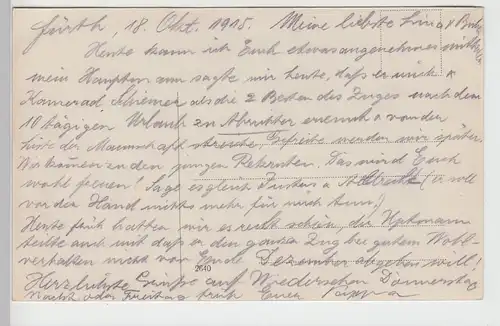 Fürth, 18. Okt. 1915. Meine liebste Lina &
Heute kann ich Euch etwas angenehmes
mein Hauptmann sagte mir heute, daß er mich &
Kamerad Schirmer als die 2 Besten des Zuges nach dem
10 tägigen Urlaub zu Abrichter ernennt & von der
Liste der Mannschaft streicht, Gefreite werden wir später.
Wir kommen zu den jungen Rekruten. Das wird Euch
wohl freuen! Sage es gleich & Albrecht (er soll
vor der Hand nichts mehr für mich tun!)
Heute früh hatten wir es recht schön, der Hptmann
teilte auch mit daß er den ganzen Zug bei gutem Wohl-
verhalten nicht vor Ende Dezember abgeben will!
Herzlichste Grüße auf Wiedersehen Donnerstag
Nacht oder Freitag früh Euer Pappa
2640